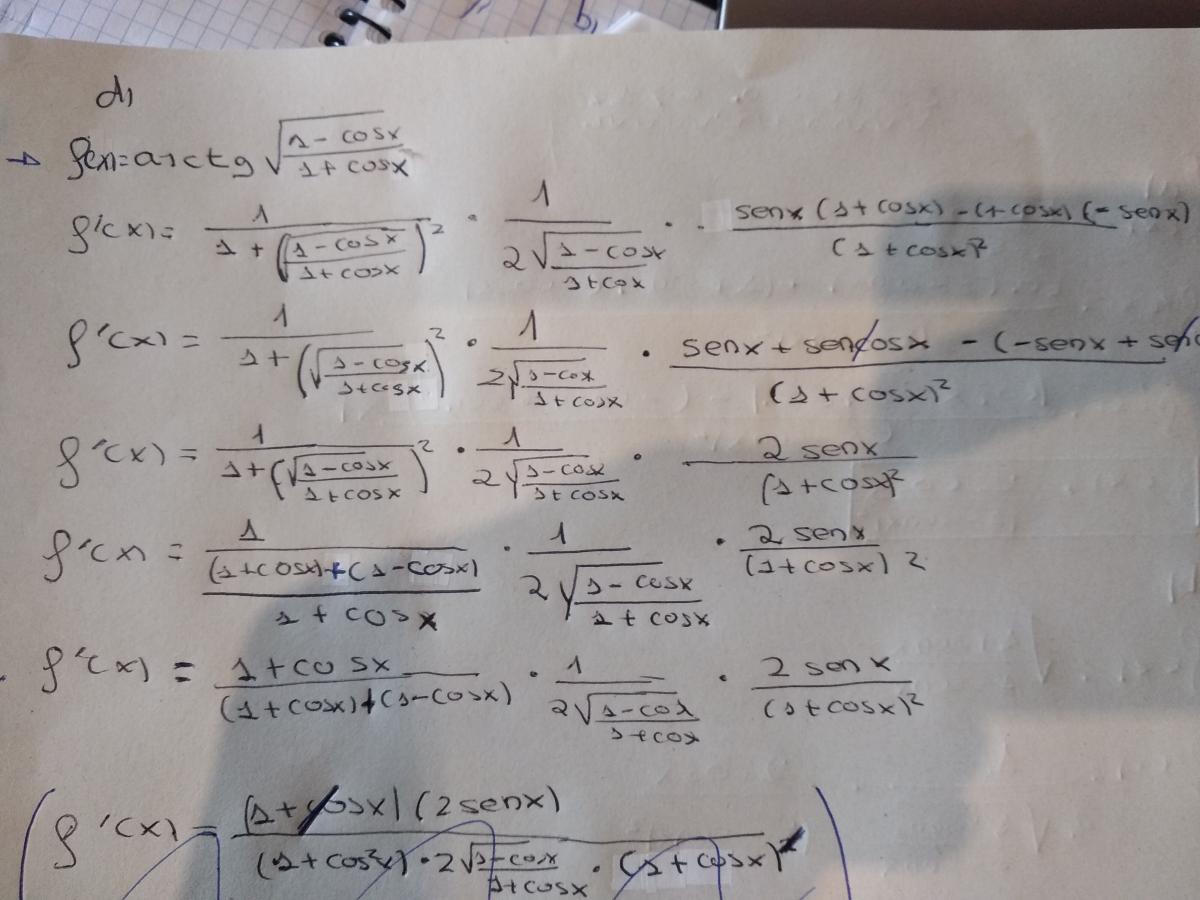 b)
d)
→ f(x)=arctg √((1-cosx)/(1+cosx))
f'(x)= 1/(1+(√((1-cosx)/(1+cosx)))²) · 1/(2√((1-cosx)/(1+cox))) · (senx(1+cosx)-(1-cosx)(-senx))/((1+cosx)²)
f'(x)= 1/(1+(√((1-cosx)/(1+cosx)))²) · 1/(2√((1-cox)/(1+cosx))) · (senx+sencosx-(-senx+sen/((1+cosx)²)
f'(x)= 1/(1+(√((1-cosx)/(1+cosx)))²) · 1/(2√((1-cosx)/(1+cosx))) · 2senx/((1+cosx)²)
f'(x)= 1/(((1+cosx)+(1-cosx))/(1+cosx)) · 1/(2√((1-cosx)/(1+cosx))) · 2senx/((1+cosx)2)
f'(x)= (1+cosx)/((1+cosx)+(1-cosx)) · 1/(2√((1-cox)/(1+cox))) · 2senx/((1+cosx)²)
(f'(x)= ((1+cosx)(2senx))/((1+cos²x)·2√((1-cox)/(1+cosx))·(1+cosx)²))